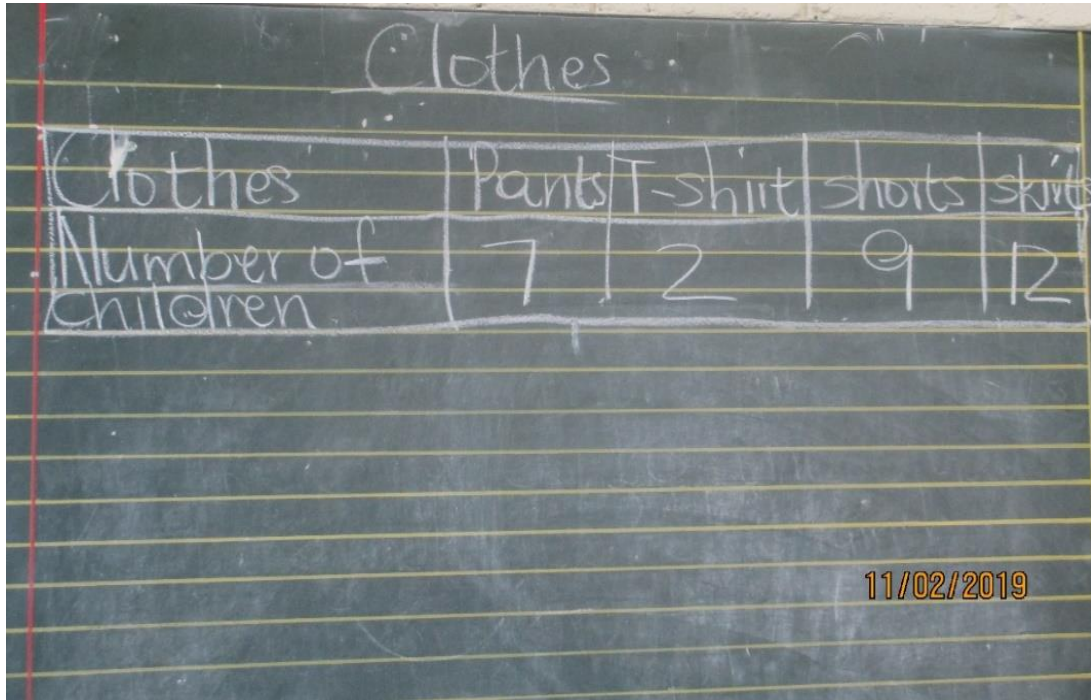 Clothes
Clothes Pants T-shirt shorts skirts
Number of 7 2 9 12
children
11/02/2019